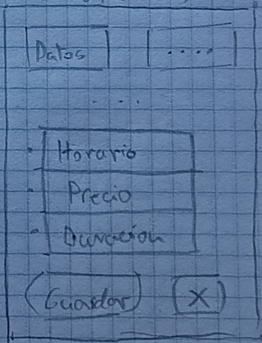 Datos ....
...
Horario
Precio
Duracion
Guardar X